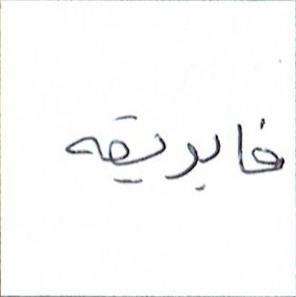 فابريقه